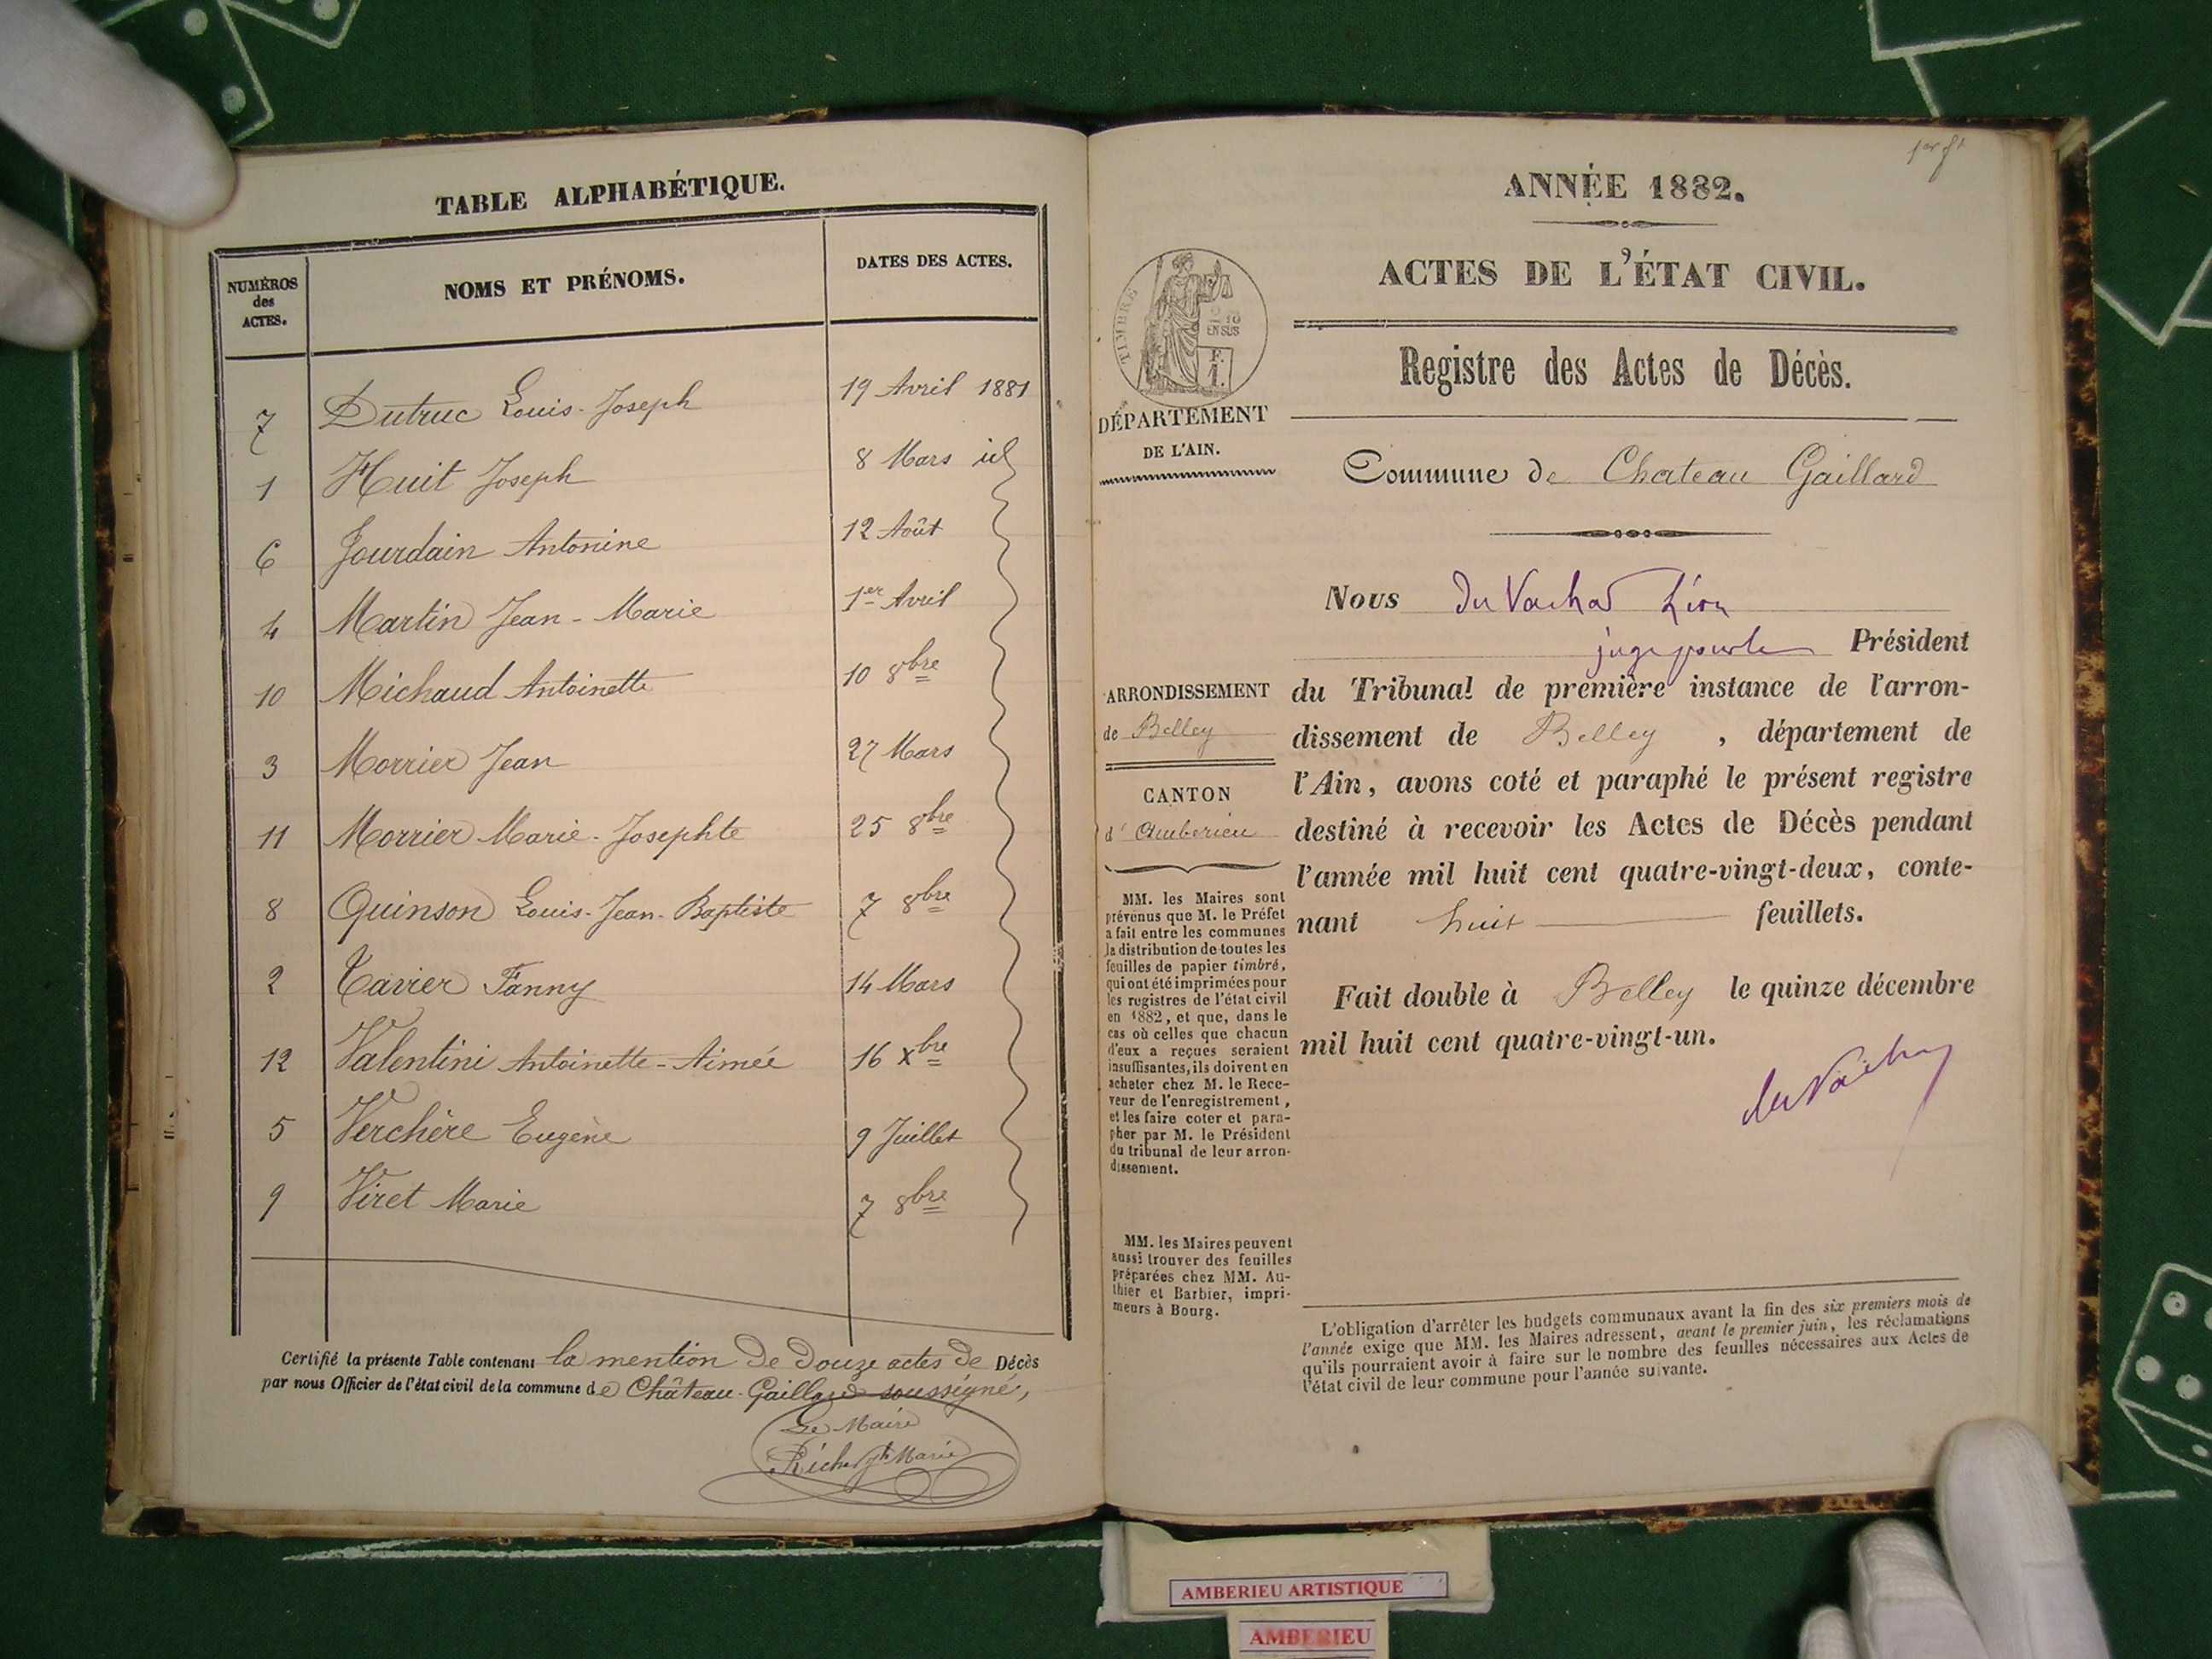 TABLE ALPHABÉTIQUE.
NUMÉROS des ACTES. NOMS ET PRÉNOMS. DATES DES ACTES.
7 Dutruc Louis-Joseph 19 Avril 1881
1 Huit Joseph 8 Mars id
6 Jourdain Antonine 12 Août
4 Martin Jean-Marie 1er Avril
10 Michaud Antoinette 10 8bre
3 Morrier Jean 27 Mars
11 Morrier Marie-Josephte 25 8bre
8 Quinson Louis-Jean-Baptiste 7 8bre
2 Tavier Fanny 14 Mars
12 Valentini Antoinette-Aimée 16 Xbre
5 Verchère Eugène 9 Juillet
9 Viret Marie 7 8bre
Certifié la présente Table contenant la mention de douze actes de Décès
par nous Officier de l'état civil de la commune de Château-Gaillard soussigné,
Le Maire
Marie
ANNÉE 1882.
ACTES DE L'ÉTAT CIVIL.
TIMBRE
2/10
EN SUS
F.
1.
Registre des Actes de Décès.
DÉPARTEMENT
DE L'AIN.
Commune de Chateau Gaillard
Nous du Vachat Léon
juge pour le Président
ARRONDISSEMENT
de Belley
CANTON
d'Amberieu
du Tribunal de première instance de l'arron-
dissement de Belley, département de
l'Ain, avons coté et paraphé le présent registre
destiné à recevoir les Actes de Décès pendant
l'année mil huit cent quatre-vingt-deux, conte-
nant huit feuillets.
Fait double à Belley le quinze décembre
mil huit cent quatre-vingt-un.
du Vachat
MM. les Maires sont
prévenus que M. le Préfet
a fait entre les communes
la distribution de toutes les
feuilles de papier timbré,
qui ont été imprimées pour
les registres de l'état civil
en 1882, et que, dans le
cas où celles que chacun
d'eux a reçues seraient
insuffisantes, ils doivent en
acheter chez M. le Rece-
veur de l'enregistrement,
et les faire coter et para-
pher par M. le Président
du tribunal de leur arron-
dissement.
MM. les Maires peuvent
aussi trouver des feuilles
préparées chez MM. Au-
thier et Barbier, impri-
meurs à Bourg.
L'obligation d'arrêter les budgets communaux avant la fin des six premiers mois de
l'année exige que MM. les Maires adressent, avant le premier juin, les réclamations
qu'ils pourraient avoir à faire sur le nombre des feuilles nécessaires aux Actes de
l'état civil de leur commune pour l'année suivante.
AMBERIEU ARTISTIQUE
AMBERIEU